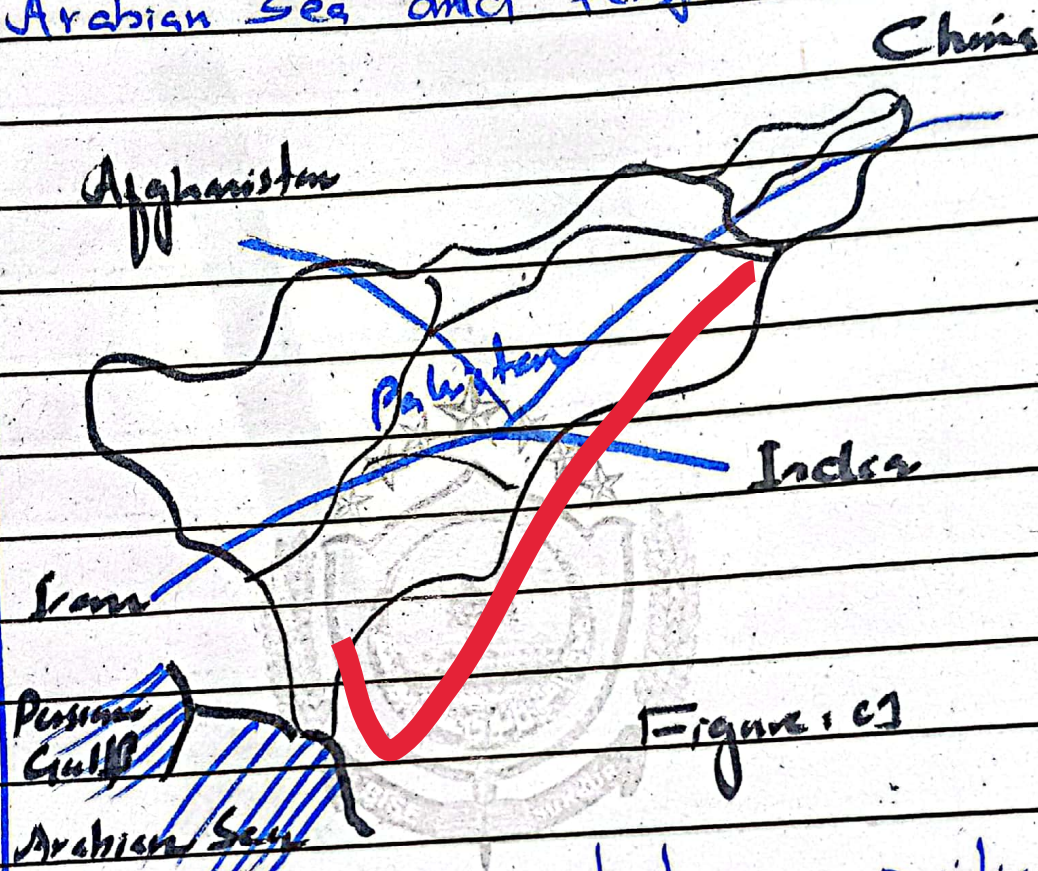 Arabian Sea and
China
Afghanistan
Pakistan
India
Iran
Persian
Gulf
Figure: 01
Arabian Sea